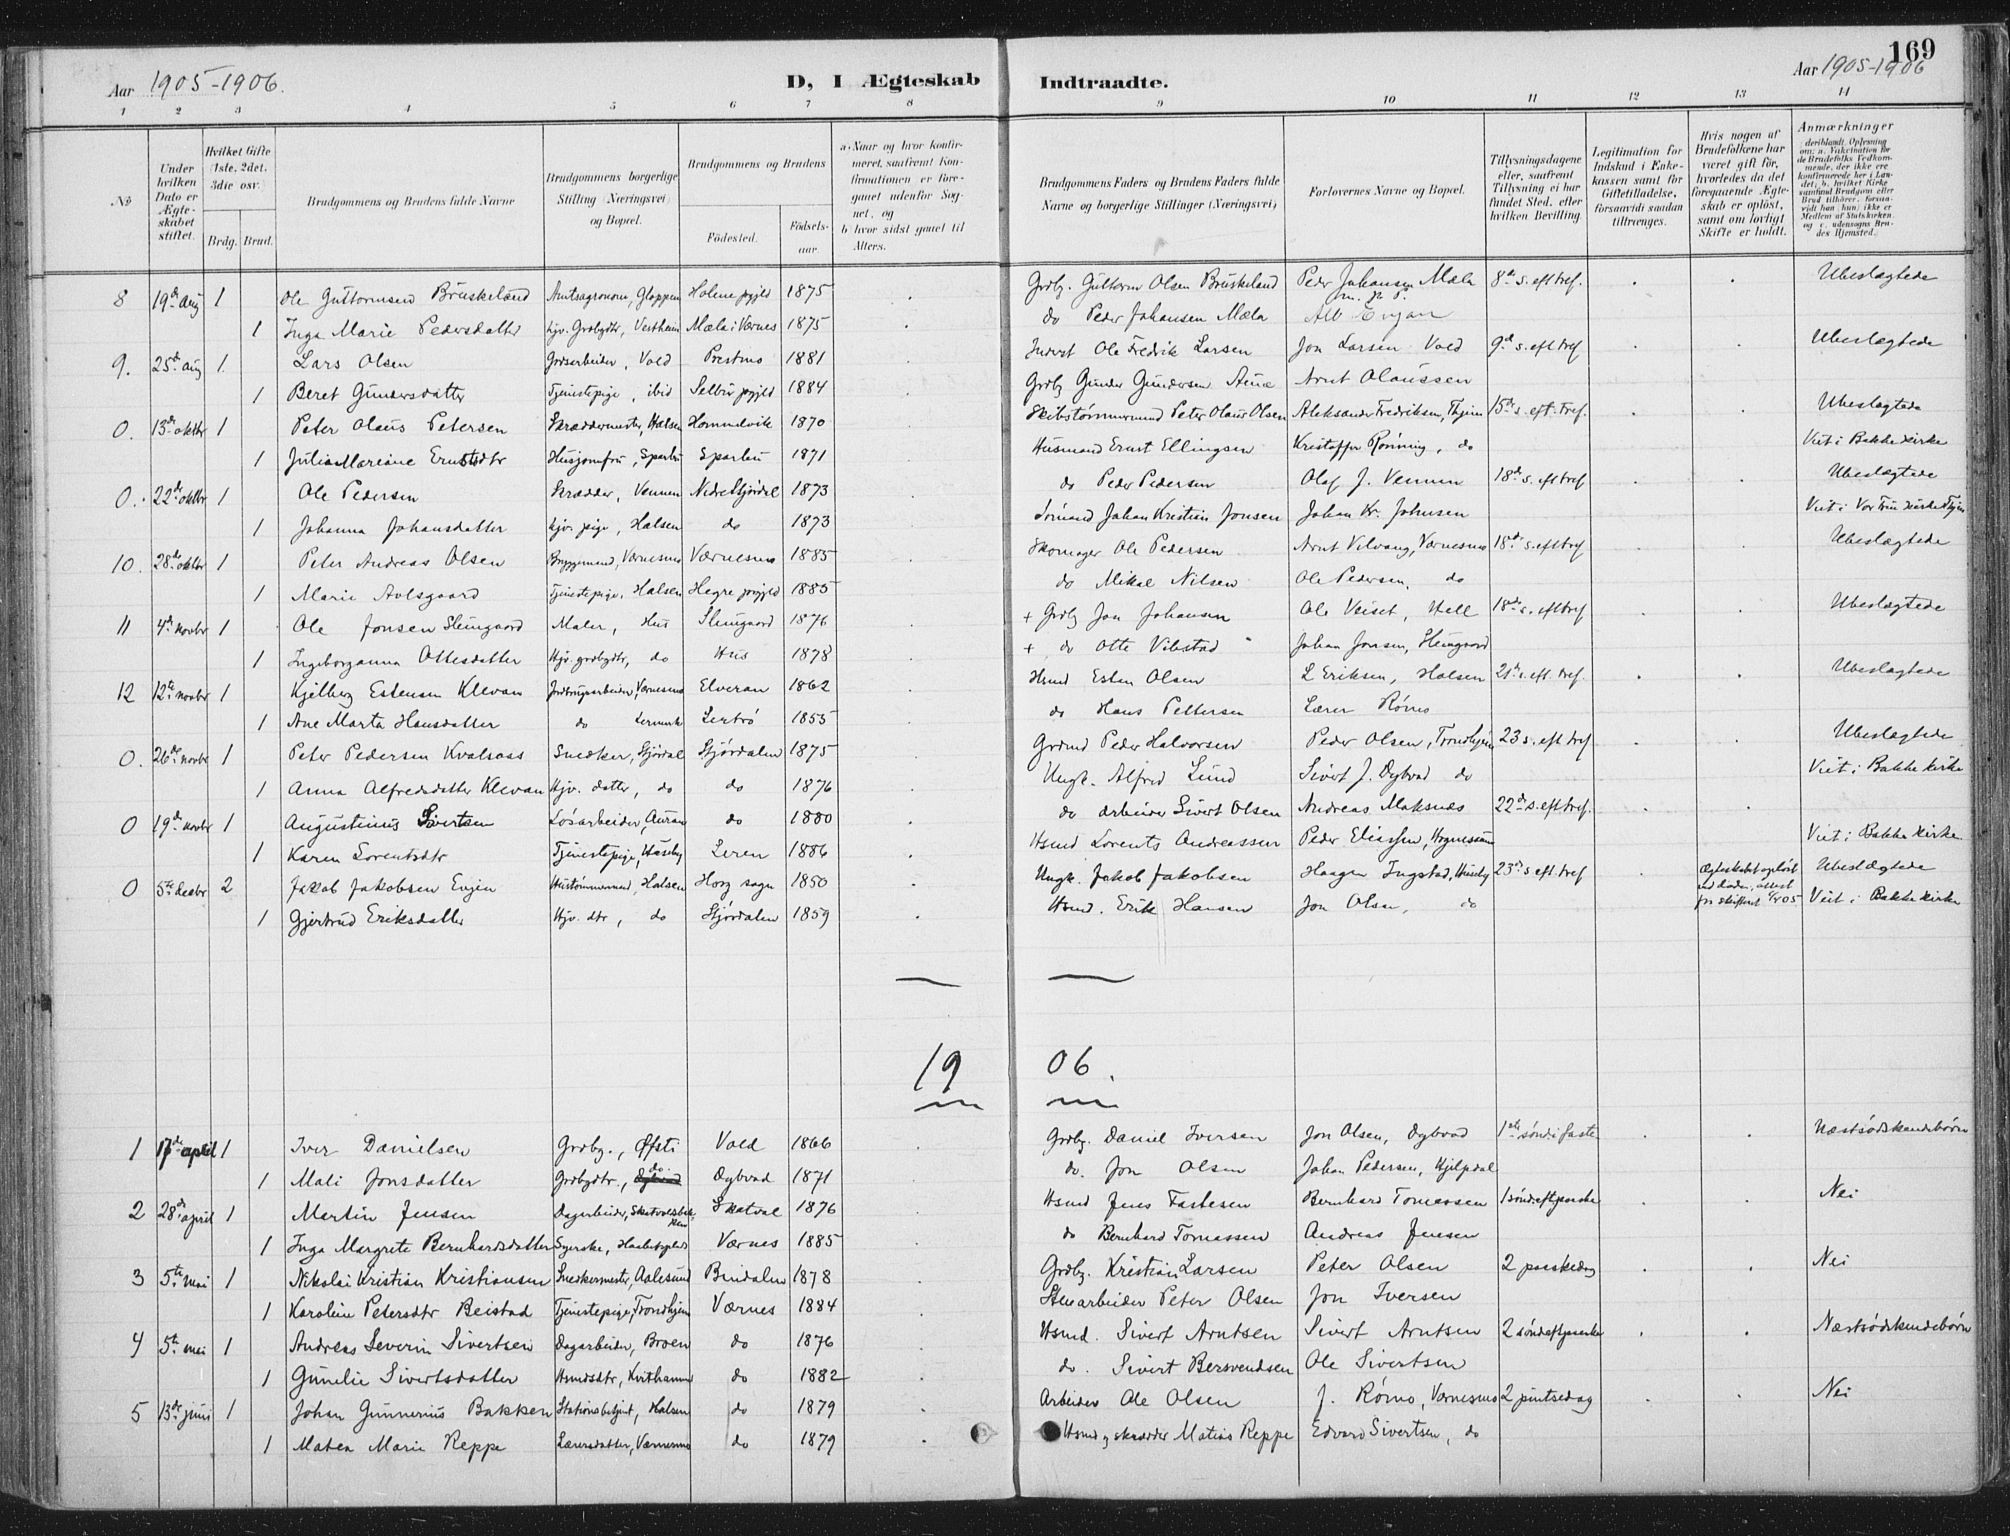 169
Aar 1905-1906.
D, I Ægteskab Indtraadte.
Aar 1905-1906
1 2 3 4 5 6 7 8 9 10 11 12 13 14
No
Under hvilken Dato er Ægteskabet stiftet.
Hvilket Gifte 1ste, 2det, 3die osv.
Brdg. Brud.
Brudgommens og Brudens fulde Navne
Brudgommens borgerlige Stilling (Næringsvei) og Bopæl.
Brudgommens og Brudens
Fødested. Fødselsaar
a. Naar og hvor konfirmeret, saafremt Konfirmationen er foregaaet udenfor Sognet, og
b hvor sidst gaaet til Alters.
Brudgommens Faders og Brudens Faders fulde Navne og borgerlige Stillinger (Næringsvei)
Forlovernes Navne og Bopæl.
Tillysningsdagene eller, saafremt Tillysning ei har fundet Sted, efter hvilken Bevilling.
Legitimation for Indskud i Enkekassen samt for Giftetilladelse, forsaavidt saadan tiltrænges.
Hvis nogen af Brudefolkene har været gift før, hvorledes da det foregaaende Ægteskab er opløst, samt om lovligt Skifte er holdt.
Anmærkninger
8 19de aug 1 Ole Guttormsen Bruskeland Amtsagronom, Gloppen Holme prgjld 1875 Grdbg. Guttorm Olsen Bruskeland Peder Johansen Mæla 8de s. eft tref. Ubeslægtede
1 Inga Marie Pedersdatter hjv. Grdbgdtr, Vestheim Mæla i Værnes 1875 do Peder Johansen Mæla
9. 25de aug 1. Lars Olsen Grdsarbeider, Vold Prestmo 1881 Inderst Ole Fredrik Larsen Jon Larsen Vold 9de s. eft tref Ubeslægtede
1 Beret Gundersdatter Tjenestepige, ibid Selbu prgjld 1884 Grdbg Gunder Gundersen Aune Arnt Olaussen
0. 13de oktbr 1 Peter Olaus Petersen Skræddermester, Halsen Hommelvik 1870 Skibstømmermand Peter Olaus Olsen Aleksander Fredriksen, Thjem 15de s. eft. tref. Ubeslægtede
1 Julia Mariane Ernstsdtr Husjomfru, Sparbu Sparbu 1871 Husmand Ernst Ellingsen Kristoffer Rønning, do Viet i Bakke kirke
0. 22de oktbr 1 Ole Pedersen Skrædder, Vennen Nedre Stjørdal 1873 do Peder Pedersen Olaf J. Vennen 18de s. eft tref Ubeslægtede
1 Johanna Johansdatter hjv. pige, Halsen do 1873 Sømand Johan Kristian Jonsen Johan Kr. Johnsen Viet i Vor Frue kirke Thjem
10. 28de oktbr 1 Peter Andreas Olsen Bryggemand, Værnesmo Værnesmo 1885 Skomager Ole Pedersen Arnt Vilvang, Værnesmo 18de s. eft tref Ubeslægtede
1 Marie Avlsgaard Tjenestepige, Halsen Hegre prgjld 1885 do Mikal Nilsen Ole Pedersen, do
11 4de novbr 1 Ole Jonsen Sleingaard Maler, Hus Sleingaard 1876 + Grdbg Jon Johansen Ole Veiset, Hell 18de s. eft tref Ubeslægtede
1 Ingeborganna Ottesdatter Hjv. grdbgdtr, do Hus 1878 + do Otte Vibstad Johan Jonsen, Sleingaard
12 12te novbr 1 Kjelberg Estensen Klevan Jordbrugsarbeider, Værnesmo Elveran 1862 Hsmd Esten Olsen L Eriksen, Halsen 21de s. eft. tref. Ubeslægtede
1 Ane Marta Hansdatter do Lermark Lexbrø 1855 do Hans Pettersen Lærer Rømo
0. 26de novbr 1 Peter Pedersen Kvalsaas Snedker, Stjørdal Stjørdalen 1875 Grdmd Peder Halvorsen Peder Olsen, Trondhjem 23 s. eft tref Ubeslægtede
1 Anna Alfredsdatter Klevan Hjv. datter, do do 1876 Ungk. Alfred Lund Sivert J. Dybvad do Viet i Bakke kirke
0 19de novbr 1 Augustinus Sivertsen Løsarbeider, Auran do 1880 do arbeider Sivert Olsen Andreas Moksnes 22de s. eft tref.
1 Karen Lorentsdtr Tjenestepige, Huseby Leren 1886 Hsmd Lorents Andreassen Peder Eliassen Viet i Bakke kirke
0 5te decbr 2 Jakob Jakobsen Evjen Hustømmermand, Halsen Horg sogn 1850 Ungk. Jakob Jakobsen Haagen Ingstad, Huseby 23de s eft. tref Ægteskabet opløst ved døden, attest fra skifteret 6/4 05 Ubeslægtede
1 Gjertrud Eriksdatter Hjv. dtr, do Stjørdalen 1859 Hsmd. Erik Hansen Jon Olsen, do Viet i Bakke kirke
1906.
1 17de april 1 Iver Danielsen Grdbg., Øfsti Vold 1866 Grdbg. Daniel Iversen Jon Olsen, Dybvad 1ste sønd i faste Næstsødskendebørn
1 Mali Jonsdatter Grdbgdtr., do Dybvad 1871 do. Jon Olsen Johan Pedersen, Hjelpdal
2 28de april 1 Martin Jensen Dagarbeider, Skatvalsbakken Skatval 1876 Hsmd Jens Tastesen Bernhard Tomassen 1 sønd eft paaske Nei
1 Inga Margrete Bernhardsdatter Syerske, Haabetsplads Værnes 1885 do Bernhard Tomassen Andreas Jensen
3 5te mai 1 Nikolai Kristian Kristiansen Snedkermester, Aalesund Bindalen 1878 Grdbg. Kristian Larsen Peter Olsen 2 paaskedag Nei
1 Karoline Petersdtr Beistad Tjenestepige, Trondhjem Værnes 1884 Stenarbeider Peter Olsen Jon Iversen
4 5te mai 1 Andreas Severin Sivertsen Dagarbeider, Broen do 1876 Hsmd. Sivert Arntsen Sivert Arntsen 2 sønd eft paaske Næstsødskendebørn
1 Gunelie Sivertsdatter Hsmdsdtr, Kvithammer do 1882 do. Sivert Bersvendsen Ole Sivertsen
5 13de juni 1 Johan Gunnerius Bakken Stationsbetjent, Halsen do 1879 Arbeider Ole Olsen J. Rømo, Værnesmo 2 pintsedag Nei
1 Matea Marie Reppe Lærersdatter, Værnesmo do 1879 Hsmd og skrædder Matias Reppe Edvard Sivertsen, do